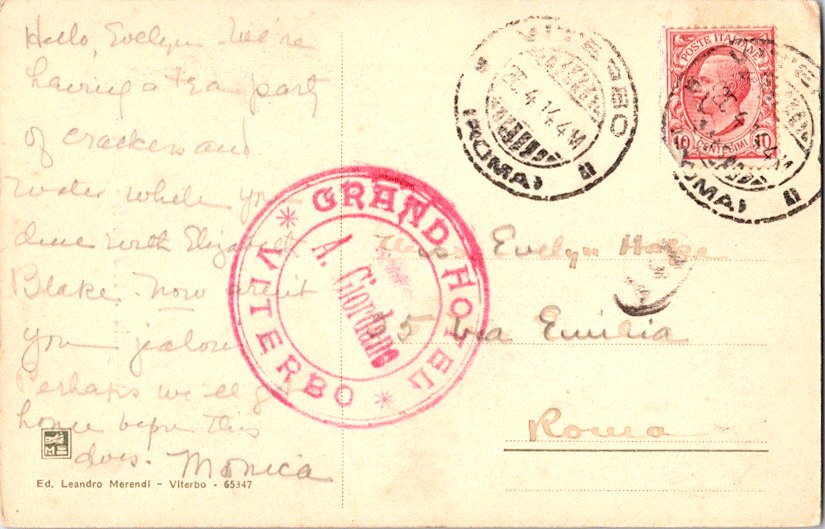 Hello, Evelyn - We're
having a tea party
of crackers and
water while you
dine with Elizabeth
Blake. Now aren't
you jealous
Perhaps we'll
home before this
does. Monica
Ed. Leandro Merendi - Viterbo - 65347
VITERBO
4.14.4M
(ROMA)
POSTE ITALIANE
10 CENTESIMI 10
(ROMA)
GRAND HOTEL
VITERBO
A. Giordano
Miss Evelyn
5 Via Emilia
Roma